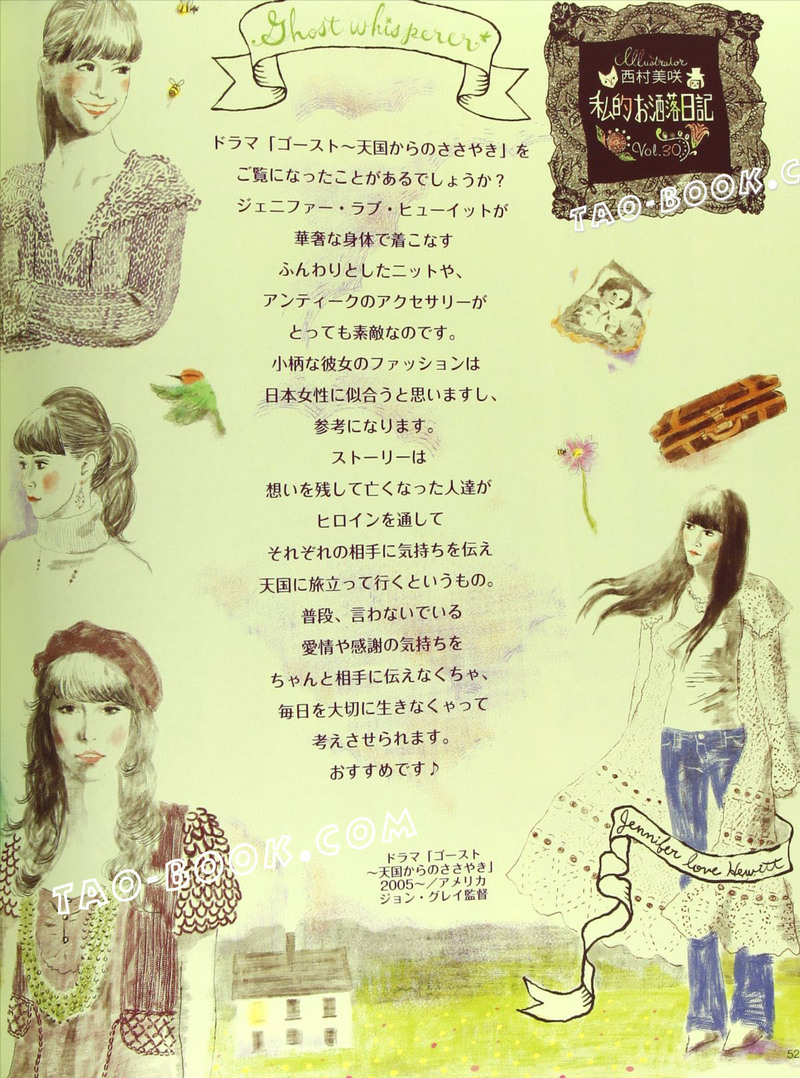 Ghost whisperer*
Illustrator
西村美咲
私的お洒落日記
Vol.30
TAO-BOOK.C
ドラマ「ゴースト〜天国からのささやき」を
ご覧になったことがあるでしょうか？
ジェニファー・ラブ・ヒューイットが
華奢な身体で着こなす
ふんわりとしたニットや、
アンティークのアクセサリーが
とっても素敵なのです。
小柄な彼女のファッションは
日本女性に似合うと思いますし、
参考になります。
ストーリーは
想いを残して亡くなった人達が
ヒロインを通して
それぞれの相手に気持ちを伝え
天国に旅立って行くというもの。
普段、言わないでいる
愛情や感謝の気持ちを
ちゃんと相手に伝えなくちゃ、
毎日を大切に生きなくゃって
考えさせられます。
おすすめです♪
Jennifer love Hewitt
TAO-BOOK.COM
ドラマ「ゴースト
〜天国からのささやき」
2005〜／アメリカ
ジョン・グレイ監督
52